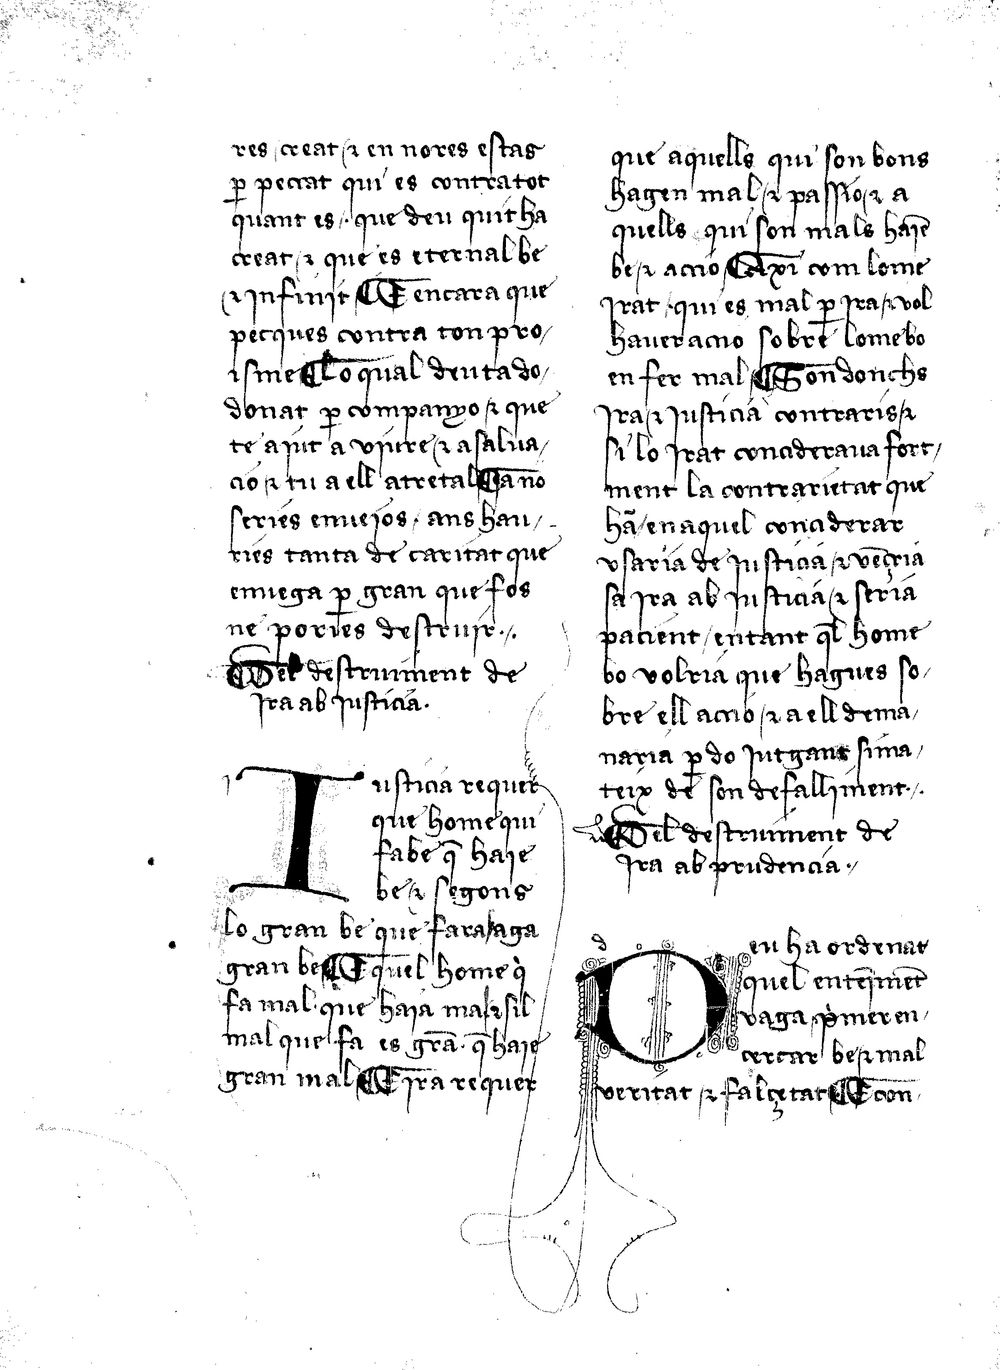 res creat ⁊ en no res estas
ꝑ peccat qui es contra tot
quant es · que deu quit ha
creat ⁊ que es eternal be
⁊ infinit ¶ E encara que
pecques contra ton pro/
isme ¶ Lo qual deu ta do/
donat ꝑ companyo ⁊ que
te aiut a viure ⁊ a salua/
cio ⁊ tu a ell atretal ¶ Ca nō
series enueios · ans hau/
ries tanta de caritat que
enuega ꝑ gran que fos
ne pories destruir ·/.
¶ Del destruiment de
Ira ab justicia ·
Iusticia requer
que home qui
fa be q̄ haie
be ⁊ segons
lo gran be que fara haga
gran be ¶ E quel home q̇
fa mal · que haia mal ⁊ sil
mal que fa es grā · q̄ haie
gran mal ¶ E ira requer
que aquells qui son bons
hagen mal ⁊ passio ⁊ a
quells qui son mals haiē
be ⁊ accio ¶ Axi com lome
irat · qui es mal ꝑ ira ⁊ vol
hauer accio sobre lome bo
en fer mal ¶ Son donchs
Ira ⁊ Justicia contraris ⁊
si lo irat concideraua fort/
ment la contrarietat que
hā / en aquel conciderar
vsaria de justicia ⁊ vēcria
sa ira ab justicia ⁊ seria
pacient / en tant q̄l home
bo volria que hagues so/
bre ell accio ⁊ a ell dema/
naria ꝑdo jutgant si ma/
teix de son defalliment ·/.
¶ Del destruiment de
Ira ab prudencia ·/
Deu ha ordenat
quel entenimēt
vaga p̄mer en/
cercar be ⁊ mal
veritat ⁊ falçetat ¶ E con/